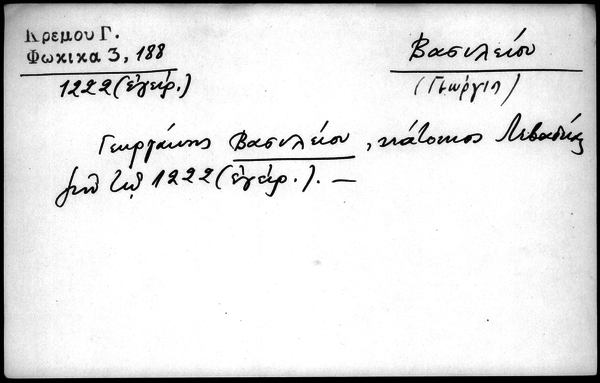 Κρεμου Γ.
Φωκικα 3, 188
1222 (ἐγείρ.)
Βασιλείου
(Γεώργιος)
Γεωργάκης Βασιλείου, κάτοικος Λεβαδείας
1222 (ἐγείρ.). —